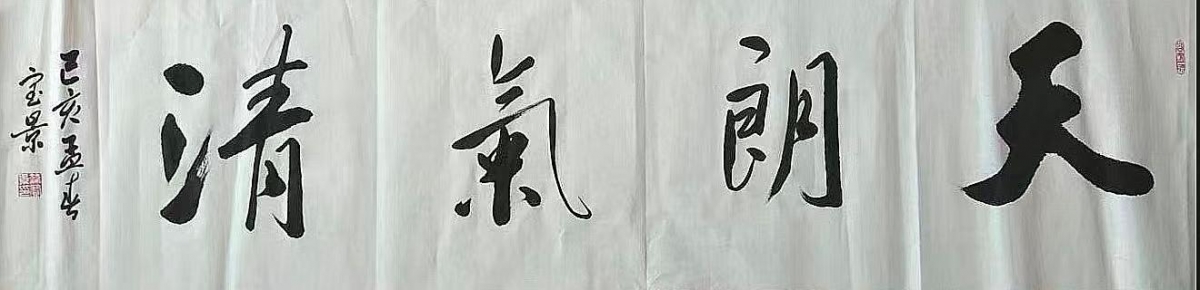 天朗氣清
己亥孟春
宝景